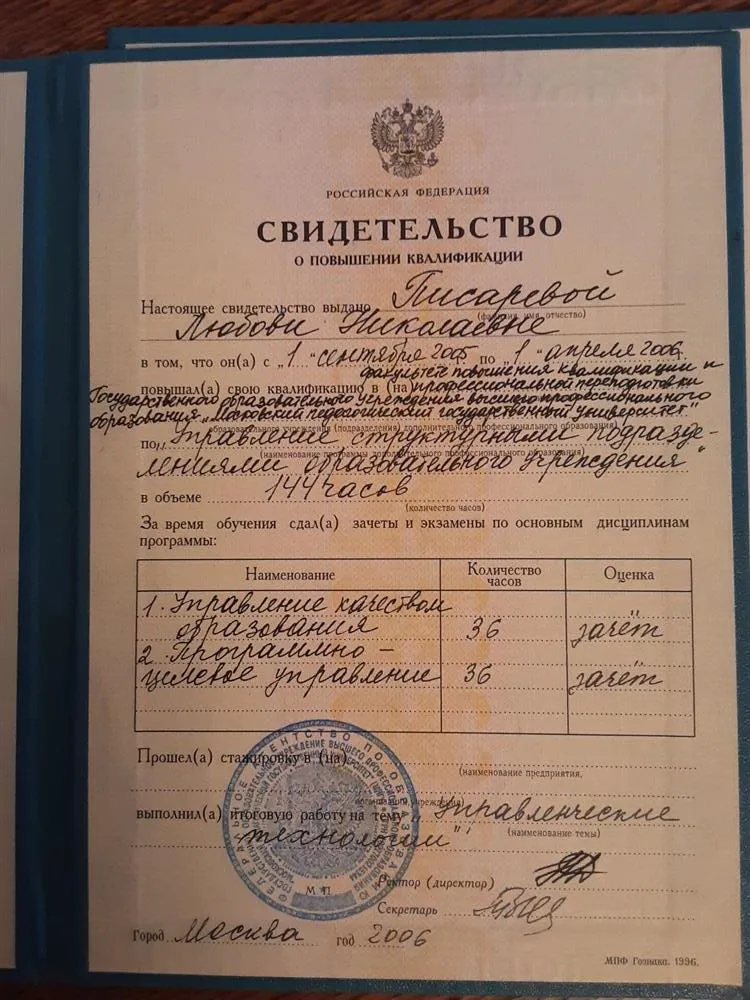 РОССИЙСКАЯ ФЕДЕРАЦИЯ
СВИДЕТЕЛЬСТВО
О ПОВЫШЕНИИ КВАЛИФИКАЦИИ
Настоящее свидетельство выдано Писаревой
(фамилия, имя, отчество)
Любови Николаевне
в том, что он(а) с „1 “ сентября 2005 по „1 “ апреля 2006
факультете повышения квалификации и
повышал(а) свою квалификацию в (на) профессиональной переподготовки
Государственного образовательного учреждения высшего профессионального
образования „Московский педагогический государственный университет"
образовательного учреждения (подразделения) дополнительного профессионального образования)
по „Управление структурными подразде-
(наименование программы дополнительного профессионального образования)
лениями образовательного учреждения"
в объеме 144 часов
(количество часов)
За время обучения сдал(а) зачеты и экзамены по основным дисциплинам
программы:
Наименование Количество часов Оценка
1. Управление качеством
образования 36 зачёт
2. Программно -
целевое управление 36 зачёт
Прошел(а) стажировку в (на)
(наименование предприятия,
организации, учреждения)
выполнил(а) итоговую работу на тему „Управленческие
(наименование темы)
технологии"
ФЕДЕРАЛЬНОЕ АГЕНТСТВО ПО ОБРАЗОВАНИЮ
М П
Ректор (директор)
Секретарь
Город Москва год 2006
МПФ Гознака. 1996.